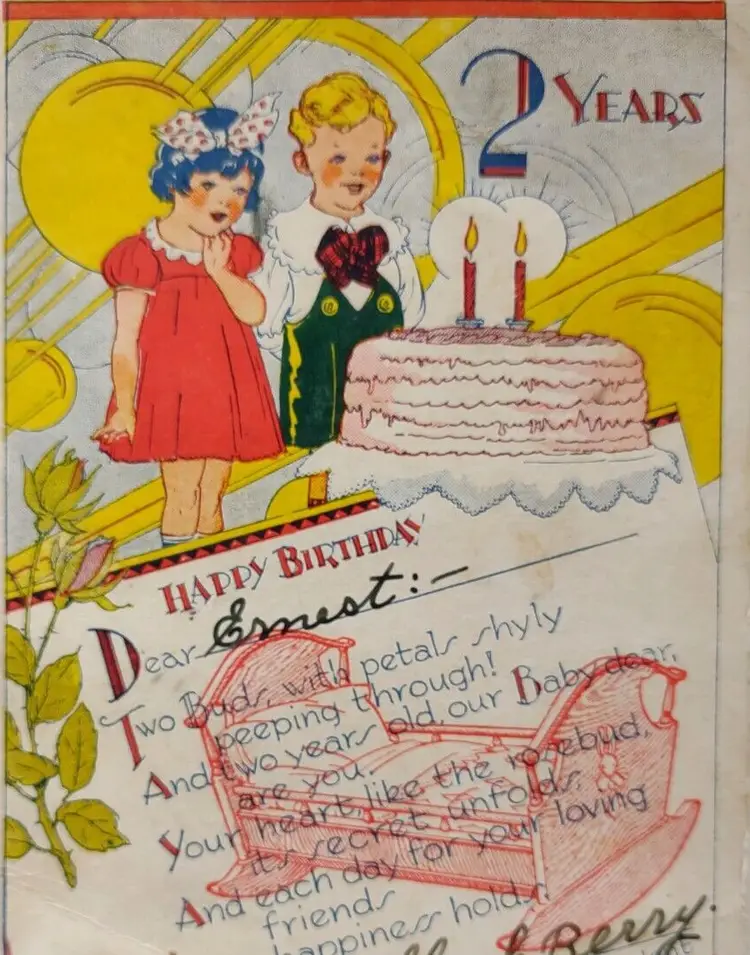 2 YEARS
HAPPY BIRTHDAY
Dear Ernest:-
Two Buds, with petals shyly
peeping through!
And two years old, our Baby dear,
are you.
Your heart, like the rosebud,
its secret unfolds,
And each day for your loving
friends
happiness holds.
Berry.